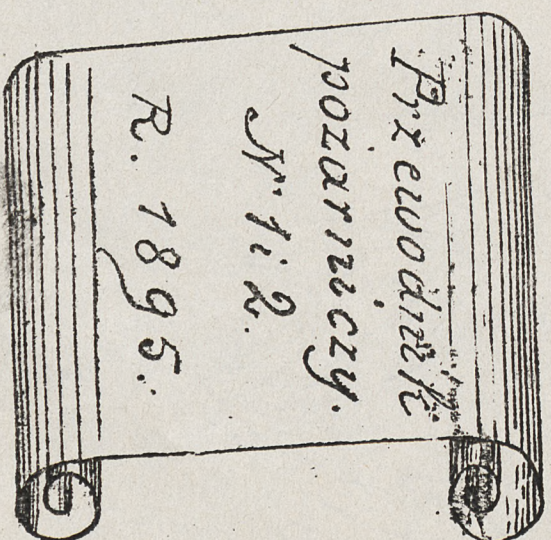 Przewodnik
pożarniczy.
N 1 i 2.
R. 1895.